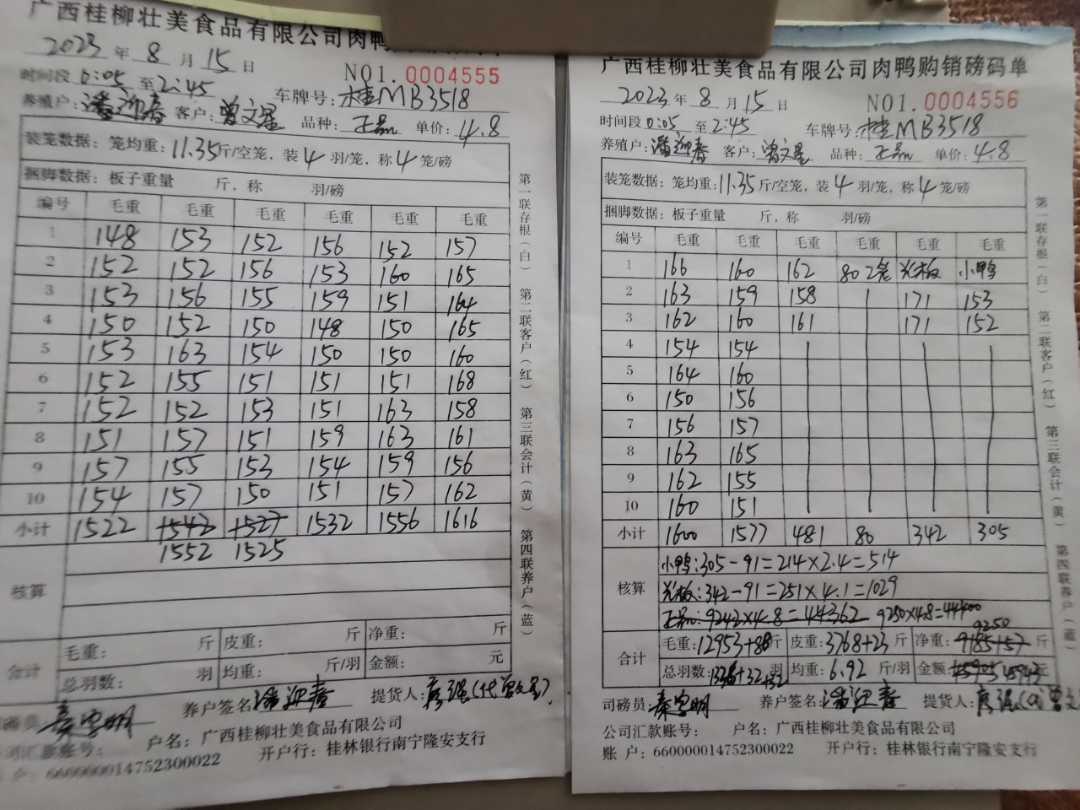 广西桂柳壮美食品有限公司肉鸭
2023年8月15日 NO1.0004555
时间段0:05至2:45 车牌号:桂MB3518
养殖户:潘迎春 客户:曾文星 品种:正品 单价:4.8
装笼数据:笼均重:11.35斤/空笼,装4羽/笼,称4笼/磅
捆脚数据:板子重量 斤,称 羽/磅
编号 毛重 毛重 毛重 毛重 毛重 毛重
1 148 153 152 156 152 157
2 152 152 156 153 160 165
3 153 156 155 159 151 164
4 150 152 150 148 150 165
5 153 163 154 150 150 160
6 152 155 151 151 151 168
7 152 152 153 151 163 158
8 151 157 151 159 163 161
9 157 155 153 154 159 156
10 154 157 150 151 157 162
小计 1522 1542 1527 1532 1556 1616
1552 1525
核算
合计 毛重: 斤 皮重: 斤 净重: 斤
总羽数: 羽 均重: 斤/羽 金额: 元
司磅员 秦 明 养户签名:潘迎春 提货人:
公司汇款账号: 户名:广西桂柳壮美食品有限公司
户:660000014752300022 开户行:桂林银行南宁隆安支行
第一联存根(白) 第二联客户(红) 第三联会计(黄) 第四联养户(蓝)
广西桂柳壮美食品有限公司肉鸭购销磅码单
2023年8月15日 NO1.0004556
时间段0:05至2:45 车牌号:桂MB3518
养殖户:潘迎春 客户:曾文星 品种:正品 单价:4.8
装笼数据:笼均重:11.35斤/空笼,装4羽/笼,称4笼/磅
捆脚数据:板子重量 斤,称 羽/磅
编号 毛重 毛重 毛重 毛重 毛重 毛重
1 166 160 162 80 2笼 光板 小鸭
2 163 159 158 171 153
3 162 160 161 171 152
4 154 154
5 164 160
6 150 156
7 156 157
8 163 165
9 162 155
10 160 151
小计 1600 1577 481 80 342 305
小鸭:305-91=214×2.4=514
核算 光板:342-91=251×4.1=1029
正品:9242×4.8=44362 9250×4.8=44400
9250
合计 毛重:12953+80斤 皮重:3768+23斤 净重:9185+57斤
总羽数: +32羽 均重:6.92斤/羽 金额: 45943元
司磅员 秦 明 养户签名:潘迎春 提货人:
公司汇款账号: 户名:广西桂柳壮美食品有限公司
账户:660000014752300022 开户行:桂林银行南宁隆安支行
第一联存根(白) 第二联客户(红) 第三联会计(黄) 第四联养户(蓝)